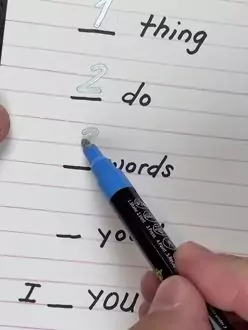 1 thing
2 do
_ words
_ yo
I _ YOU